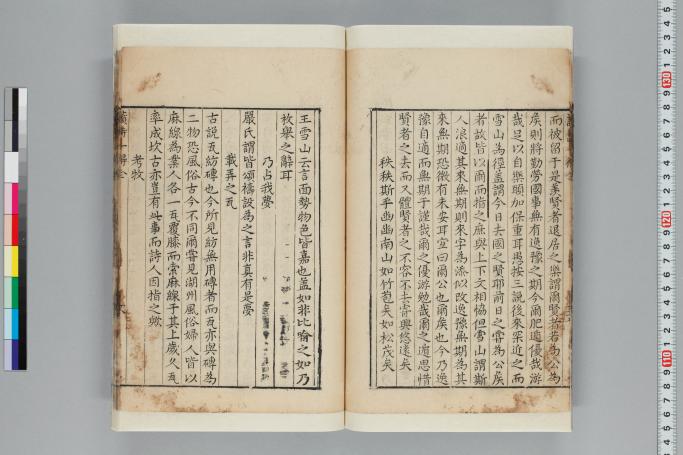 而被留于是奚賢者退居之樂謂爾賢者若為公為
矦則將勤勞國事無有逸豫之期今爾肥遁優哉游
哉足以自樂頤加保重耳愚按三說後來深近之而
雪山為徑蓋謂今日去國之賢耶前日之嘗為公矦
者故皆以爾而指之庶與上下文相協但雪山謂斯
人浪適其來無期則來字為添似改逸豫無期為其
來無期恐微有未安耳宜曰爾公也爾矦也今乃逸
豫自適而無期乎謹哉爾之優游勉哉爾之遁思惜
賢者之去而又體賢者之不容不去音興悠遠矣
秩秩斯干幽幽南山如竹苞矣如松茂矣
王雪山云言面勢物色皆嘉也蓋如非比喻之如乃
枚舉之辭耳
乃占我夢
嚴氏謂皆頌禱設為之言非真有是夢
載弄之瓦
古說瓦紡磚也今所見紡無用磚者而瓦亦與磚為
二物恐風俗古今不同爾嘗見湖州風俗婦人皆以
麻線為業人各一瓦覆膝而索麻線于其上歲久瓦
率成坎古亦豈有此事而詩人因指之歟
考牧